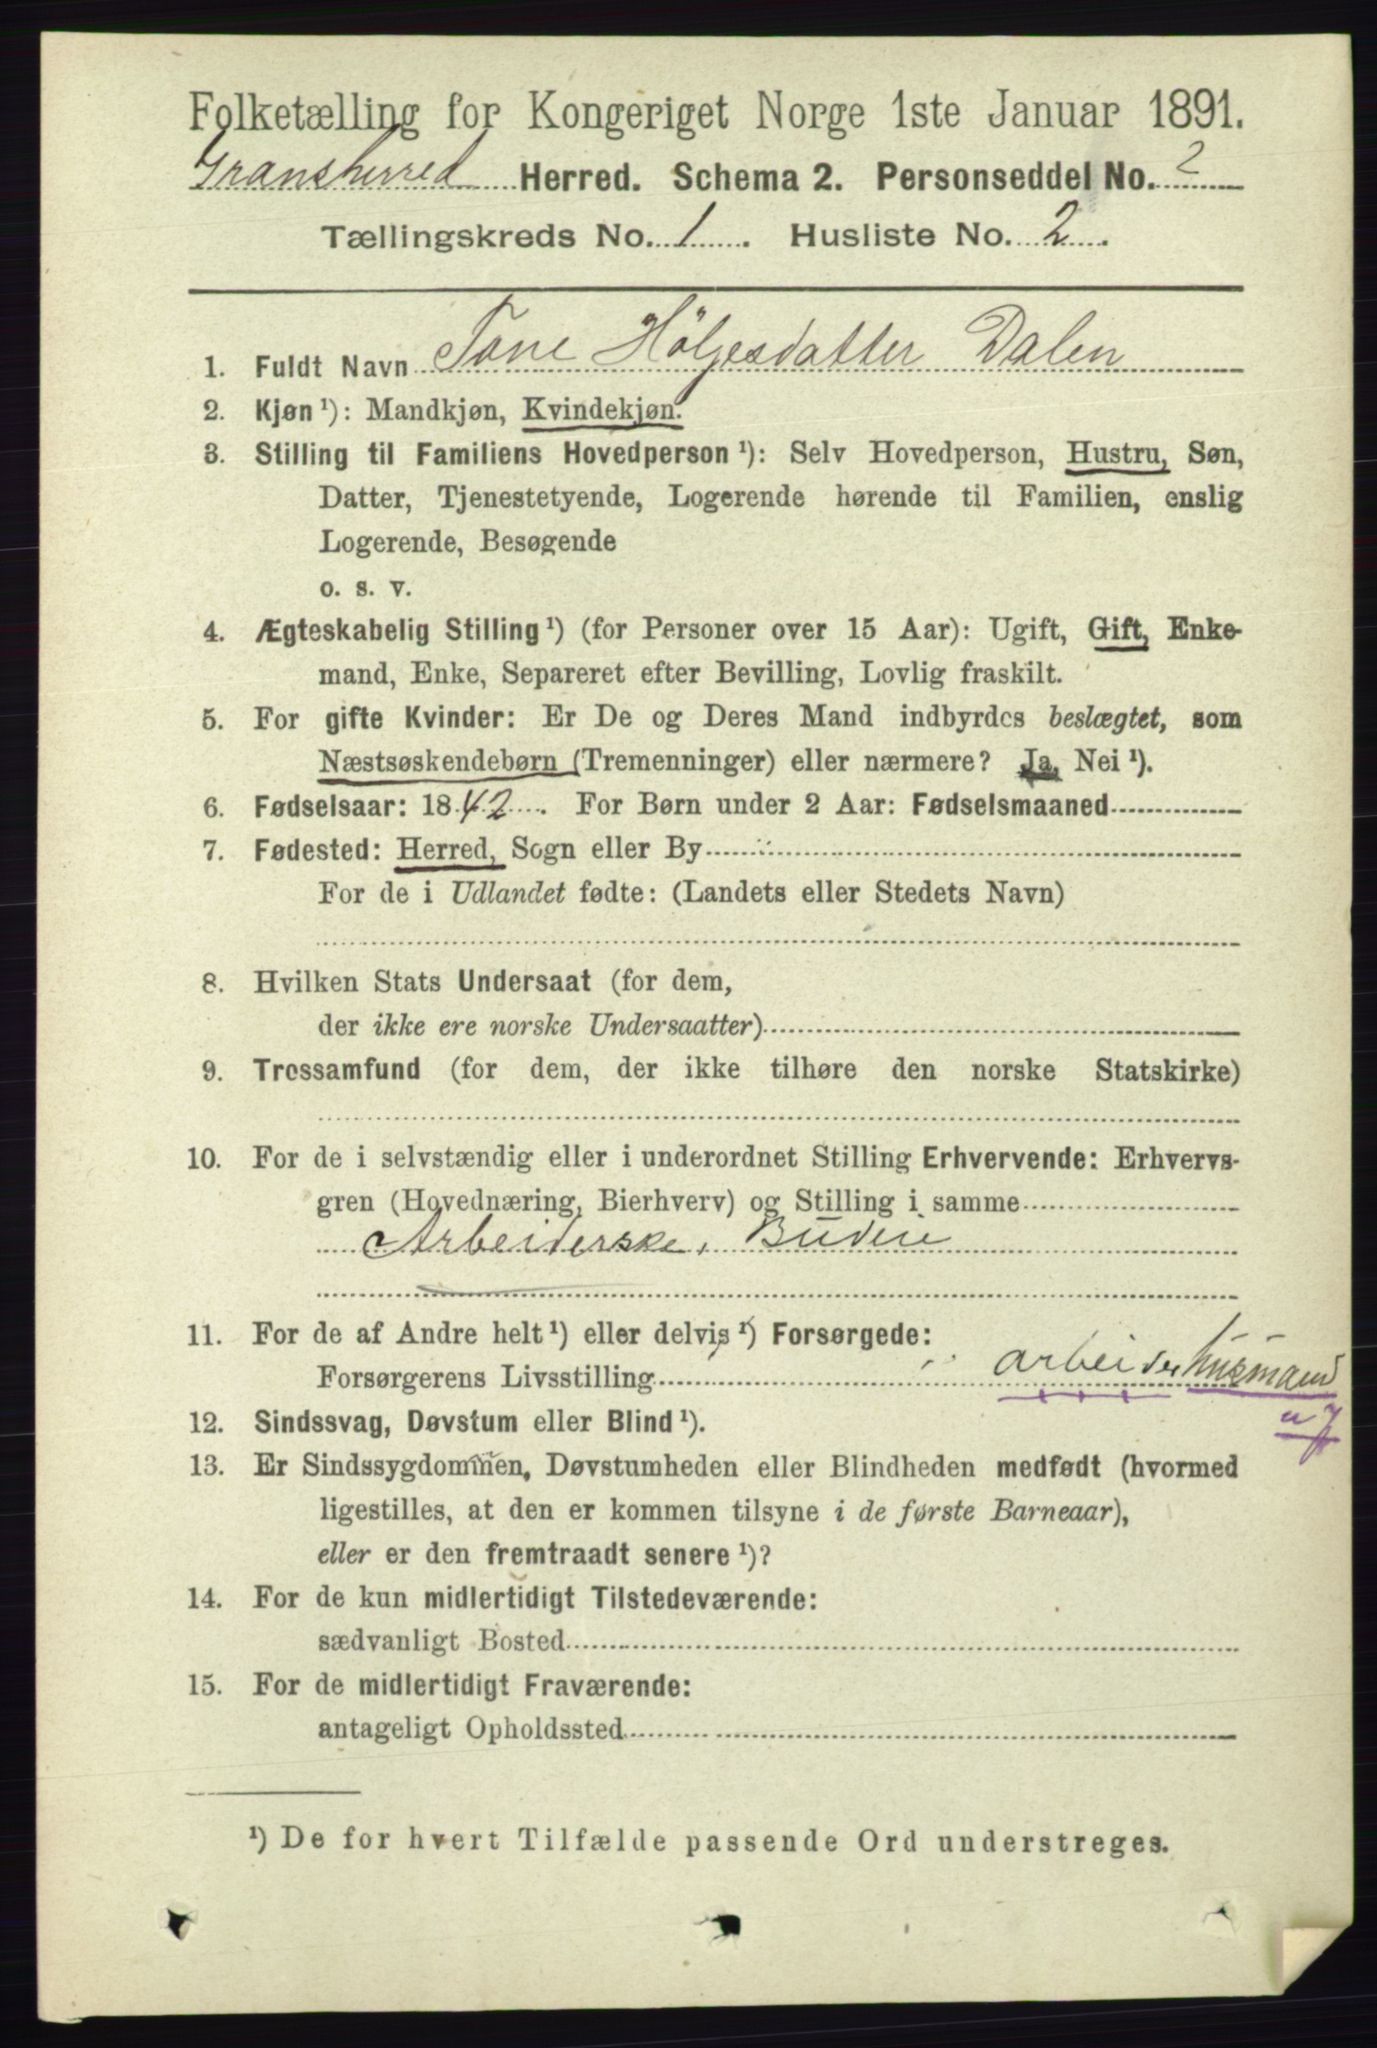 Folketælling for Kongeriget Norge 1ste Januar 1891.
Gransherred Herred. Schema 2. Personseddel No. 2
Tællingskreds No. 1. Husliste No. 2.
1. Fuldt Navn Tone Hølgesdatter Dalen
2. Kjøn¹): Mandkjøn, Kvindekjøn.
3. Stilling til Familiens Hovedperson¹): Selv Hovedperson, Hustru, Søn,
Datter, Tjenestetyende, Logerende hørende til Familien, enslig
Logerende, Besøgende
o. s. v.
4. Ægteskabelig Stilling¹) (for Personer over 15 Aar): Ugift, Gift, Enke-
mand, Enke, Separeret efter Bevilling, Lovlig fraskilt.
5. For gifte Kvinder: Er De og Deres Mand indbyrdes beslægtet, som
Næstsøskendebørn (Tremenninger) eller nærmere? Ja, Nei¹).
6. Fødselsaar: 1842. For Børn under 2 Aar: Fødselsmaaned
7. Fødested: Herred, Sogn eller By
For de i Udlandet fødte: (Landets eller Stedets Navn)
8. Hvilken Stats Undersaat (for dem,
der ikke ere norske Undersaatter)
9. Trossamfund (for dem, der ikke tilhøre den norske Statskirke)
10. For de i selvstændig eller i underordnet Stilling Erhvervende: Erhvervs-
gren (Hovednæring, Bierhverv) og Stilling i samme
Arbeiderske, Budeie
11. For de af Andre helt¹) eller delvis¹) Forsørgede:
Forsørgerens Livsstilling arbeider husmand
12. Sindssvag, Døvstum eller Blind¹).
13. Er Sindssygdommen, Døvstumheden eller Blindheden medfødt (hvormed
ligestilles, at den er kommen tilsyne i de første Barneaar),
eller er den fremtraadt senere¹)?
14. For de kun midlertidigt Tilstedeværende:
sædvanligt Bosted
15. For de midlertidigt Fraværende:
antageligt Opholdssted
¹) De for hvert Tilfælde passende Ord understreges.